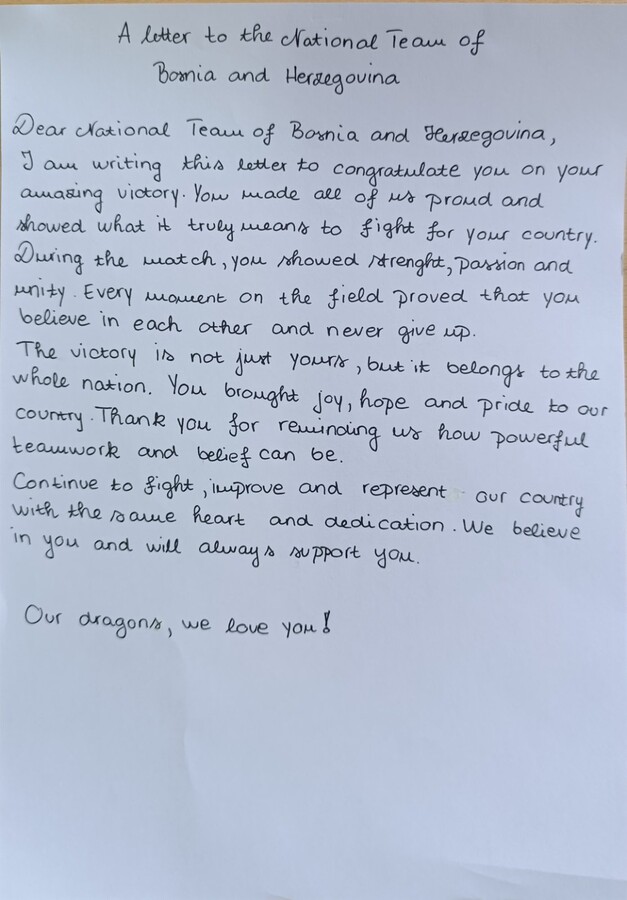 A letter to the National Team of
Bosnia and Herzegovina
Dear National Team of Bosnia and Herzegovina,
I am writing this letter to congratulate you on your
amazing victory. You made all of us proud and
showed what it truly means to fight for your country.
During the match, you showed strenght, passion and
unity. Every moment on the field proved that you
believe in each other and never give up.
The victory is not just yours, but it belongs to the
whole nation. You brought joy, hope and pride to our
country. Thank you for reminding us how powerful
teamwork and belief can be.
Continue to fight, improve and represent our country
with the same heart and dedication. We believe
in you and will always support you.
Our dragons, we love you!